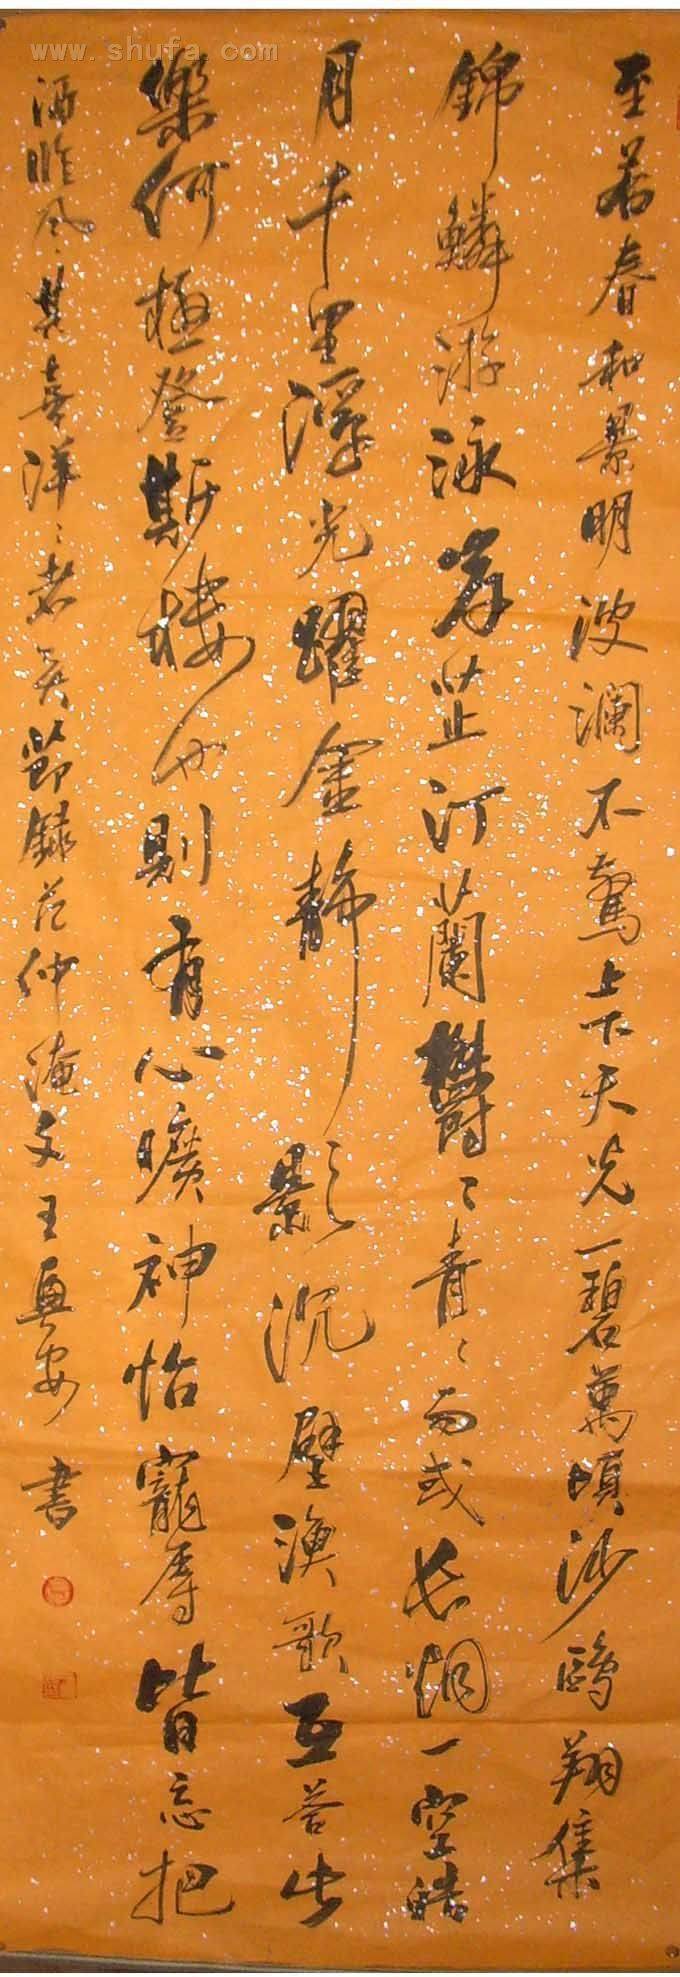 www.shufa.com
至若春和景明波瀾不驚上下天光一碧萬頃沙鷗翔集
錦鱗游泳岸芷汀蘭鬱〻青〻而或長烟一空皓
月千里浮光躍金靜影沉璧漁歌互答此
樂何極登斯樓也則有心曠神怡寵辱皆忘把
酒临风〻其喜洋〻者矣節録范仲淹文王興安書